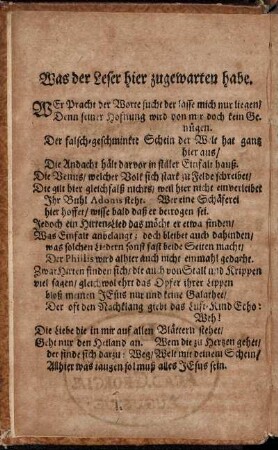 Was der Leser hier zugewarten habe.
WEr Pracht der Worte sucht der lasse mich nur liegen/
Denn seiner Hofnung wird von mir doch kein Ge-
nügen.
Der falsch-geschminkte Schein der Welt hat gantz
hier aus/
Die Andacht hält darvor in stiller Einfalt hauß.
Die Venus/ welcher Volk sich stark zu Felde schreibet/
Die gilt hier gleichfalß nichts/ weil hier nicht einverleibet
Ihr Buhl Adonis steht. Wer eine Schäferei
hier hoffet/ wisse bald daß er betrogen sei.
Jedoch ein Hirten-Lied das möcht er etwa finden/
Was Einfalt anbelangt: doch bleibet auch dahinden/
was solchen Liedern sonst fast beide Seiten macht/
Der Phillis wird allhier auch nicht einmahl gedacht.
Zwar Hirten finden sich/ die auch von Stall und Krippen
viel sagen/ gleichwol ehrt das Opfer ihrer Lippen
bloß meinen JEsus nur und keine Galathee/
Der oft den Nachklang giebt das Luft-Kind Echo:
Weh!
Die Liebe die in mir auf allen Blättern stehet/
Geht nur den Heiland an. Wem die zu Hertzen gehet/
der finde sich darzu: Weg/ Welt mit deinem Schein/
Allhier was taugen sol muß alles JEsus sein.